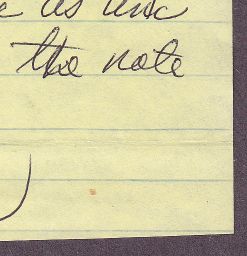 as
the note